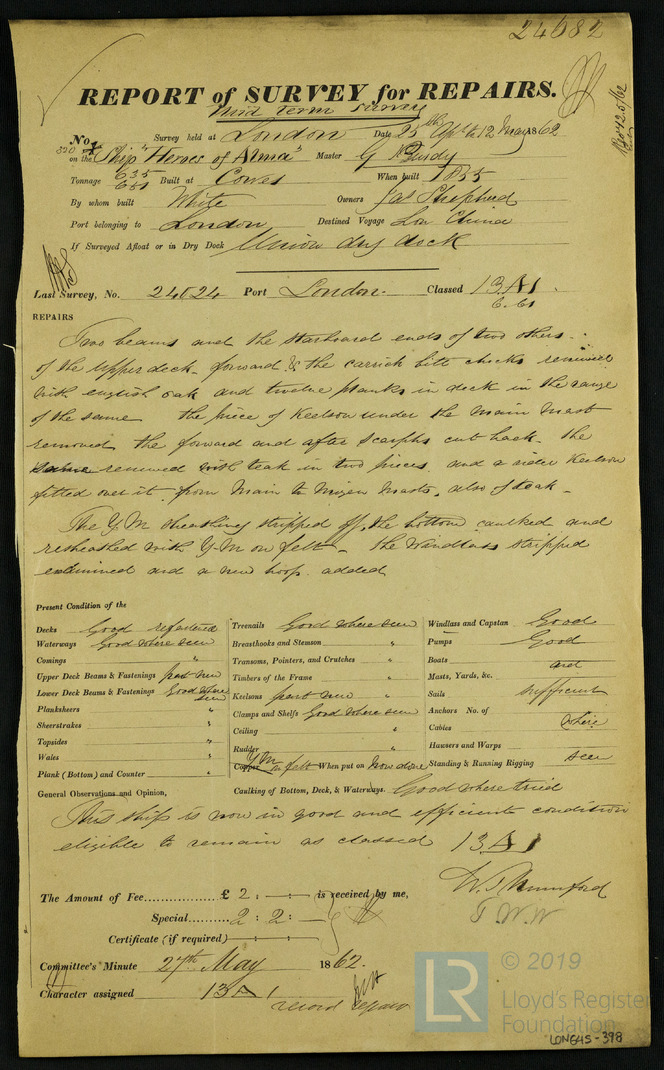 24682
REPORT of SURVEY for REPAIRS.
Mid Term Survey
No. Survey held at London Date 25th Apl to 12 May 1862
on the Ship "Heroes of Alma" Master G Purdy
Tonnage 635 651 Built at Cowes When built 1855
By whom built White Owners Jas Shepherd
Port belonging to London Destined Voyage Lon China
If Surveyed Afloat or in Dry Dock Union dry dock
Last Survey, No. 24524 Port London Classed 13 A 1
6.61
REPAIRS
Two beams and the starboard ends of two others
of the upper deck forward & the carrick bitt chocks renewed
with english oak and twelve planks in deck in the range
of the same the piece of Keelson under the Main Mast
removed the forward and after scarphs cut back the
same renewed with teak in two pieces and a rider Keelson
fitted over it from Main to Mizen Masts, also of teak
The Y.M sheathing stripped off, the bottom caulked and
resheathed with Y.M on felt the Windlass stripped
examined and a new hoop added
Present Condition of the
Decks Good refastened
Waterways Good where seen
Comings "
Upper Deck Beams & Fastenings part new
Lower Deck Beams & Fastenings Good where seen
Planksheers "
Sheerstrakes "
Topsides "
Wales "
Plank (Bottom) and Counter "
Treenails Good where seen
Breasthooks and Stemson "
Transoms, Pointers, and Crutches "
Timbers of the Frame "
Keelsons part new
Clamps and Shelfs Good where seen
Ceiling "
Rudder "
Copper Y M on felt When put on Now done
Caulking of Bottom, Deck, & Waterways. Good where tried
Windlass and Capstan Good
Pumps Good
Boats and
Masts, Yards, &c.
Sails sufficient
Anchors No. of
Cables where
Hawsers and Warps
Standing & Running Rigging seen
General Observations and Opinion,
This ship is now in good and efficient condition
eligible to remain as classed 13 A 1
W. T. Mumford
T. W. W
The Amount of Fee £ 2 : - : - is received by me,
Special 2 : 2 : -
Certificate (if required)
Committee's Minute 27th May 1862.
Character assigned 13 A 1
record repairs
LR © 2019
Lloyd's Register
Foundation
LON645-398